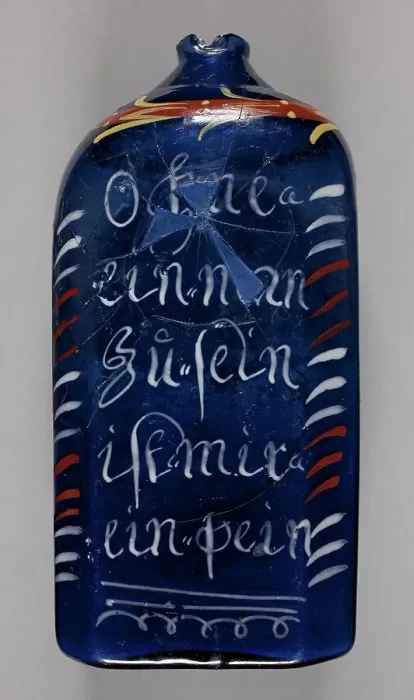 Ohne
ein⸗n an
Zů⸗ſein
iſt⸗mir
ein⸗pein